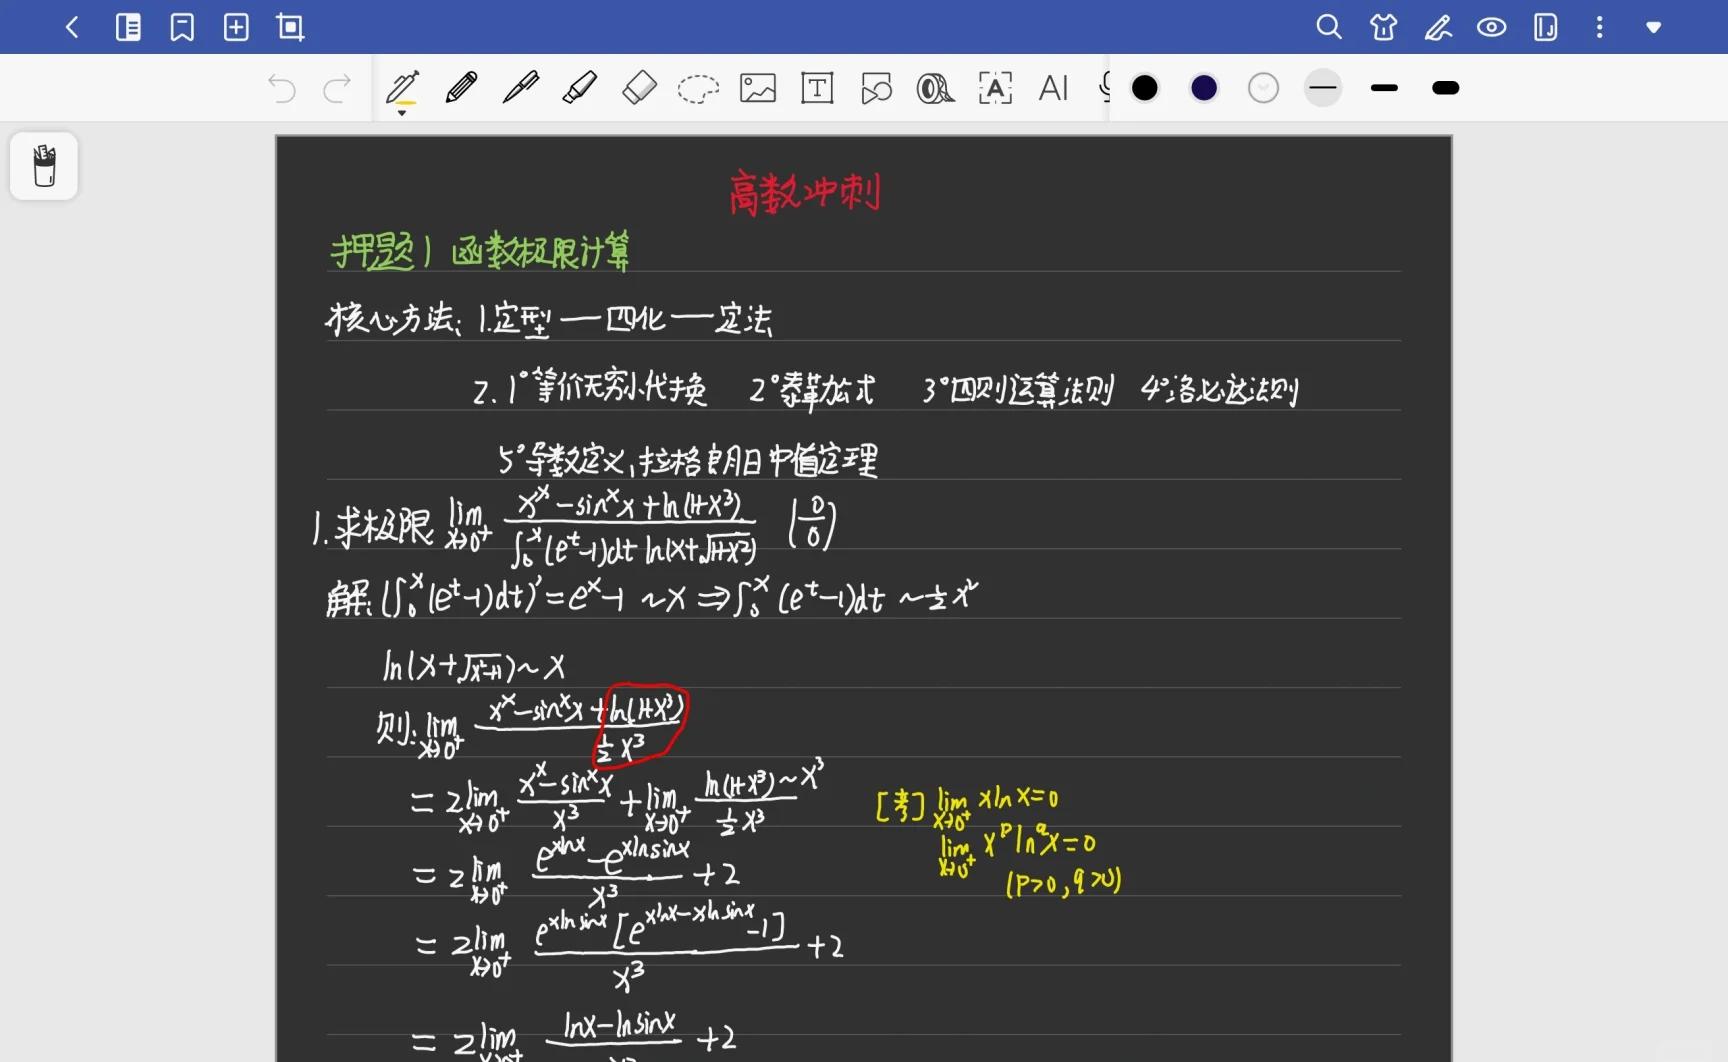 高数冲刺
押题1 函数极限计算
核心方法: 1.定型—四化—定法
2. 1°等价无穷小代换 2°泰勒公式 3°四则运算法则 4°洛必达法则
5°导数定义,拉格朗日中值定理
1.求极限 lim x→0⁺ (x^x - sin^x x + ln(1+x³)) / (∫₀^x (e^t-1)dt ln(x+√(1+x²))) (0/0)
解: (∫₀^x (e^t-1)dt)' = e^x-1 ~ x ⇒ ∫₀^x (e^t-1)dt ~ ½x²
ln(x+√(x²+1)) ~ x
则: lim x→0⁺ (x^x - sin^x x + ln(1+x³)) / (½x³)
= 2 lim x→0⁺ (x^x - sin^x x) / x³ + lim x→0⁺ (ln(1+x³) ~ x³) / (½x³)
[考] lim x→0⁺ xlnx=0
lim x→0⁺ x^p ln^q x=0
(p>0, q>0)
= 2 lim x→0⁺ (e^(xlnx) - e^(xlnsinx)) / x³ + 2
= 2 lim x→0⁺ (e^(xlnsinx) [e^(xlnx-xlnsinx) -1]) / x³ + 2
= 2 lim x→0⁺ (lnx-lnsinx) / +2